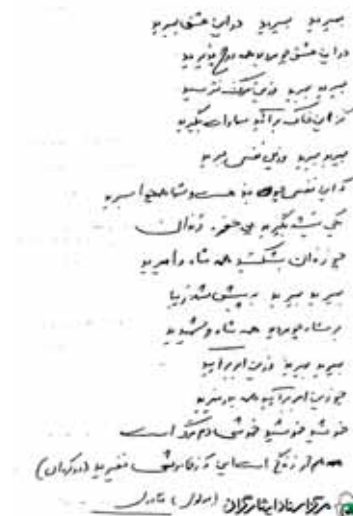 بمیرید بمیرید در این عشق بمیرید
در این عشق چو مردید همه روح پذیرید
بمیرید بمیرید وزین مرگ نترسید
کز این خاک برآئید سماوات بگیرید
بمیرید بمیرید وزین نفس ببرید
که این نفس چو بند است و شما همچو اسیرید
یکی تیشه بگیرید پی حفره زندان
چو زندان بشکستید همه شاه و امیرید
بمیرید بمیرید به پیش شه زیبا
بر شاه چو مردید همه شاه و شهیرید
بمیرید بمیرید وزین ابر برآئید
چو زین ابر برآئید همه بدر منیرید
خموشید خموشید خموشی دم مرگ است
هم از زندگی است این که ز خاموش نفیرید
مرکز اسناد ایثارگران